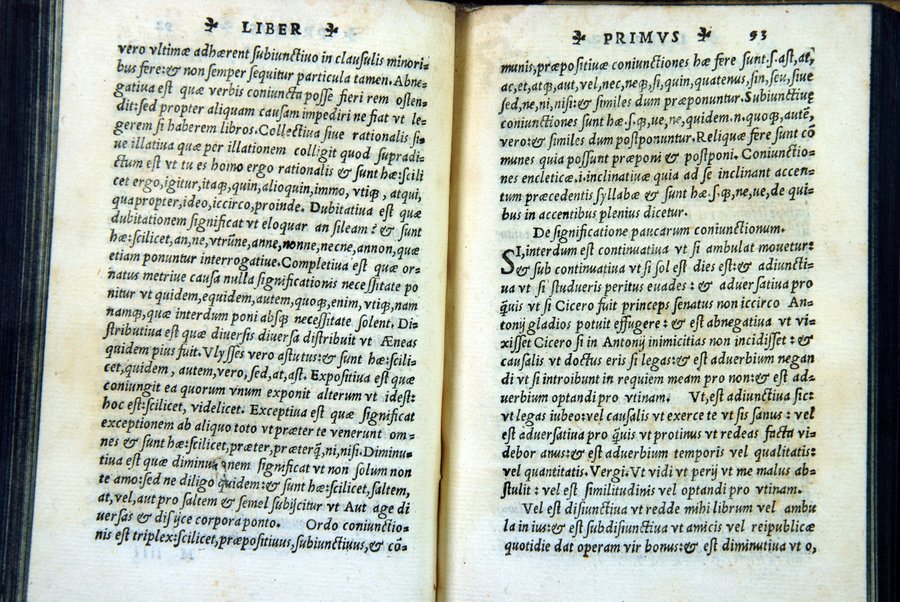 ✤ LIBER ✤
vero vltimæ adhærent subiunctiuo in clausulis minori=
bus fere:& non semper sequitur particula tamen. Abne=
gatiua est quæ verbis coniuncta posse fieri rem osten=
dit: sed propter aliquam causam impediri ne fiat vt le=
gerem si haberem libros. Collectiua siue rationalis si=
ue illatiua quæ per illationem colligit quod supradi=
ctum est vt tu es homo ergo rationalis & sunt hæ: scili
cet ergo, igitur, itaq;, quin, alioquin, immo, vtiq;, atqui,
quapropter, ideo, iccirco, proinde. Dubitatiua est quæ
dubitationem significat vt eloquar an sileam? & sunt
hæ: scilicet, an, ne, vtrũne, anne, nonne, necne, annon, quæ
etiam ponuntur interrogatiue. Completiua est quæ or=
natus metriue causa nulla significationis necessitate po
nitur vt quidem, equidem, autem, quoq;, enim, vtiq;, nam
namq;, quæ interdum poni absq; necessitate solent. Di=
stributiua est quæ diuersis diuersa distribuit vt Æneas
quidem pius fuit. Vlysses vero astutus:& sunt hæ: scili=
cet, quidem, autem, vero, sed, at, ast. Expositiua est quæ
coniungit ea quorum vnum exponit alterum vt idest:
hoc est: scilicet, videlicet. Exceptiua est quæ significat
exceptionem ab aliquo toto vt præter te venerunt om=
nes & sunt hæ: scilicet, præter, præterq̃, ni, nisi. Diminu=
tiua est quæ diminutionem significat vt non solum non
te amo: sed ne diligo quidem:& sunt hæ: scilicet, saltem,
at, vel, aut pro saltem & semel subijcitur vt Aut age di
uersas & disijce corpora ponto. Ordo coniunctio=
nis est triplex: scilicet, præpositiuus, subiunctiuus, & cõ=
✤ PRIMVS ✤ 93
munis, præpositiuæ coniunctiones hæ fere sunt. s. ast, at,
ac, et, atq;, aut, vel, nec, neq;, si, quin, quatenus, sin, seu, siue
sed, ne, ni, nisi:& similes dum præponuntur. Subiunctiuę
coniunctiones sunt hæ. s. q;, ue, ne, quidem. n. quoq;, autẽ,
vero:& similes dum postponuntur. Reliquæ fere sunt cõ
munes quia possunt præponi & postponi. Coniunctio=
nes encleticæ. i. inclinatiuæ quia ad se inclinant accen=
tum præcedentis syllabæ & sunt hæ. s. q;, ne, ue, de qui=
bus in accentibus plenius dicetur.
De significatione paucarum coniunctionum.
SI, interdum est continuatiua vt si ambulat mouetur:
& sub continuatiua vt si sol est dies est:& adiuncti=
ua vt si studueris peritus euades:& aduersatiua pro
q̃uis vt si Cicero fuit princeps senatus non iccirco An=
tonij gladios potuit effugere:& est abnegatiua vt vi=
xisset Cicero si in Antonij inimicitias non incidisset:&
causalis vt doctus eris si legas:& est aduerbium negan
di vt si introibunt in requiem meam pro non:& est ad=
uerbium optandi pro vtinam. Vt, est adiunctiua sic:
vt legas iubeo: vel causalis vt exerce te vt sis sanus: vel
est aduersatiua pro q̃uis vt protinus vt redeas facta vi=
debor anus:& est aduerbium temporis vel qualitatis:
vel quantitatis. Vergi. Vt vidi vt perij vt me malus ab=
stulit: vel est similitudinis vel optandi pro vtinam.
Vel est disiunctiua vt redde mihi librum vel ambu
la in ius:& est subdisiunctiua vt amicis vel reipublicæ
quotidie dat operam vir bonus:& est diminutiua vt o,